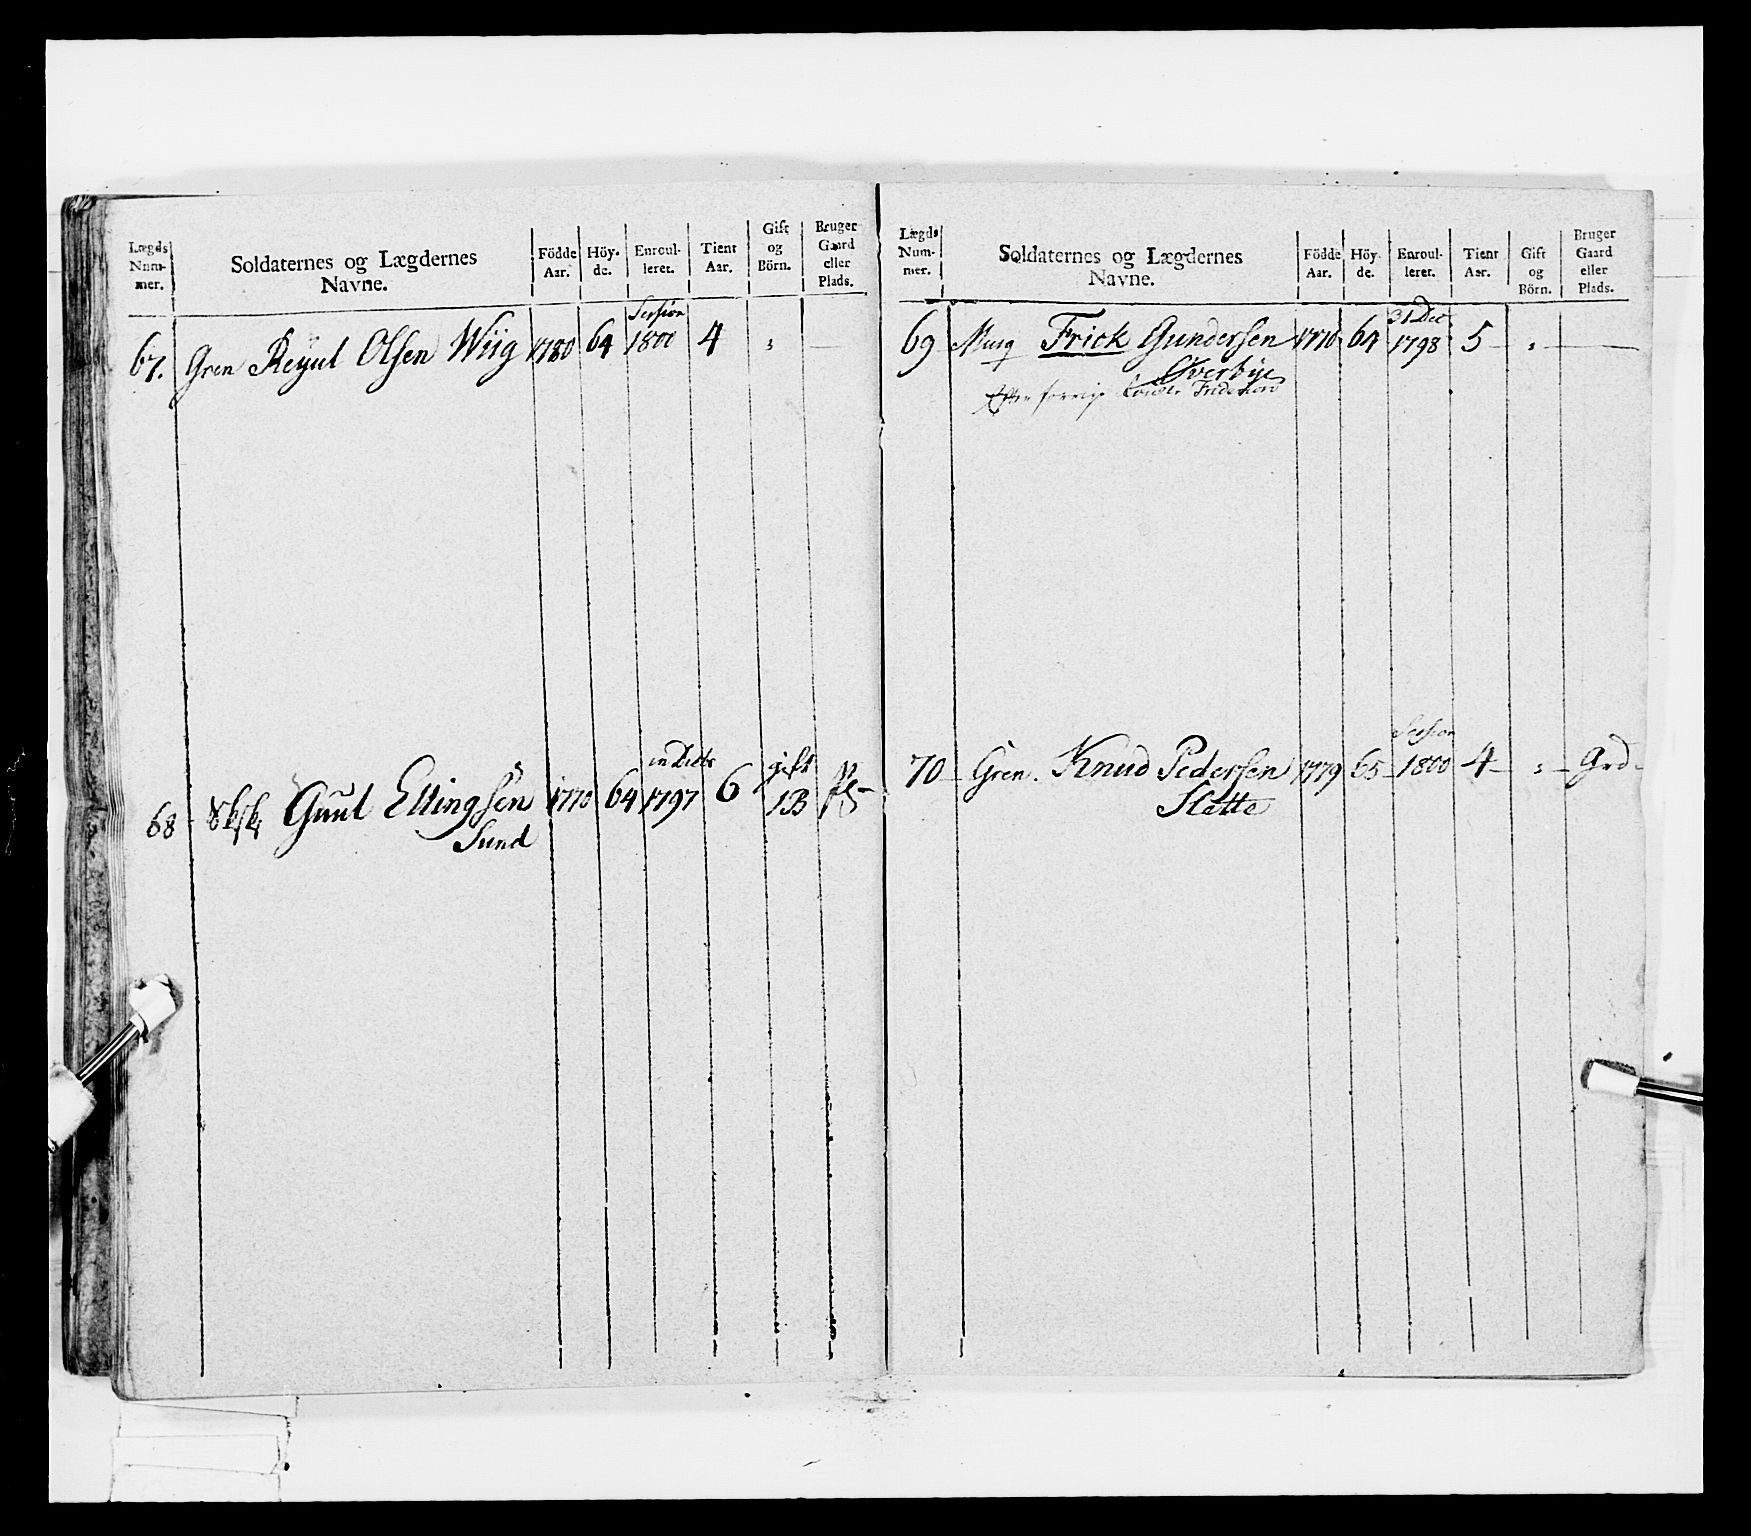 Lægds Num- mer. | Soldaternes og Lægdernes Navne. | Födde Aar. | Höy- de. | Enroul- leret. | Tient Aar. | Gift og Börn. | Bruger Gaard eller Plads.
Session
67. Gren Reÿnt Olsen Wiig 1780 64 1800 4 " —
gift
68 - Gunt Ellingsen 1770 64 1797 6 1B
Sund
Lægds Num- mer. | Soldaternes og Lægdernes Navne. | Födde Aar. | Höy- de. | Enroul- leret. | Tient Aar. | Gift og Börn. | Bruger Gaard eller Plads.
31 Dec
69 Musq Frick Gundersen 1770 64 1798 5 - " —
Överbye
Session
70 - Gren. Knud Pedersen 1779 65 1800 4 - " - Grd -
Slette